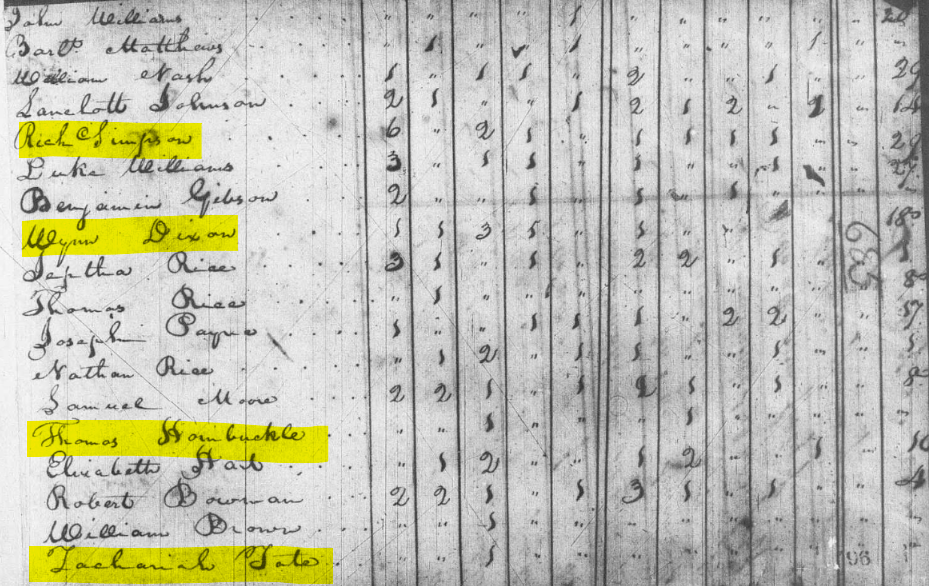 John Williams " " " " 1 " " " " " "
Bartt Matthews " 1 " 1 " " " " 1 " "
William Nash 1 " 1 1 " 2 " " 1 " " 29
Lancelott Johnson 2 1 " " 1 2 1 2 " " 14
Rich C Simpson 6 " 2 1 " 1 1 1 1 " " 29
Luke Williams 3 " 1 1 " 1 " " 1 " 27
Benjamin Gibson 2 " " 1 " 1 " 1 " "
Wynn Dixon 1 1 3 1 " 1 " " " "
Jeptha Rice 3 1 " 1 " 2 2 " 1 " " 1
Thomas Rice " 1 " 1 " " " " " " 8
Joseph Payne 1 " " 1 1 1 " 2 2 " " 17
Nathan Rice " 1 2 " 1 1 " " 1 " " 1
Samuel Moore 2 2 1 " 1 2 1 " 1 " " 8
Thomas Hornbuckle " " 1 " " " 1 " " " " "
Elizabeth Hart " 1 2 " " 1 2 " " 1 " 10
Robert Bowman 2 2 1 " 1 3 1 " 1 " " 4
William Brown " " 1 " " " " " " " " "
Zachariah Tate " " 1 " " " " " " " "
639
96